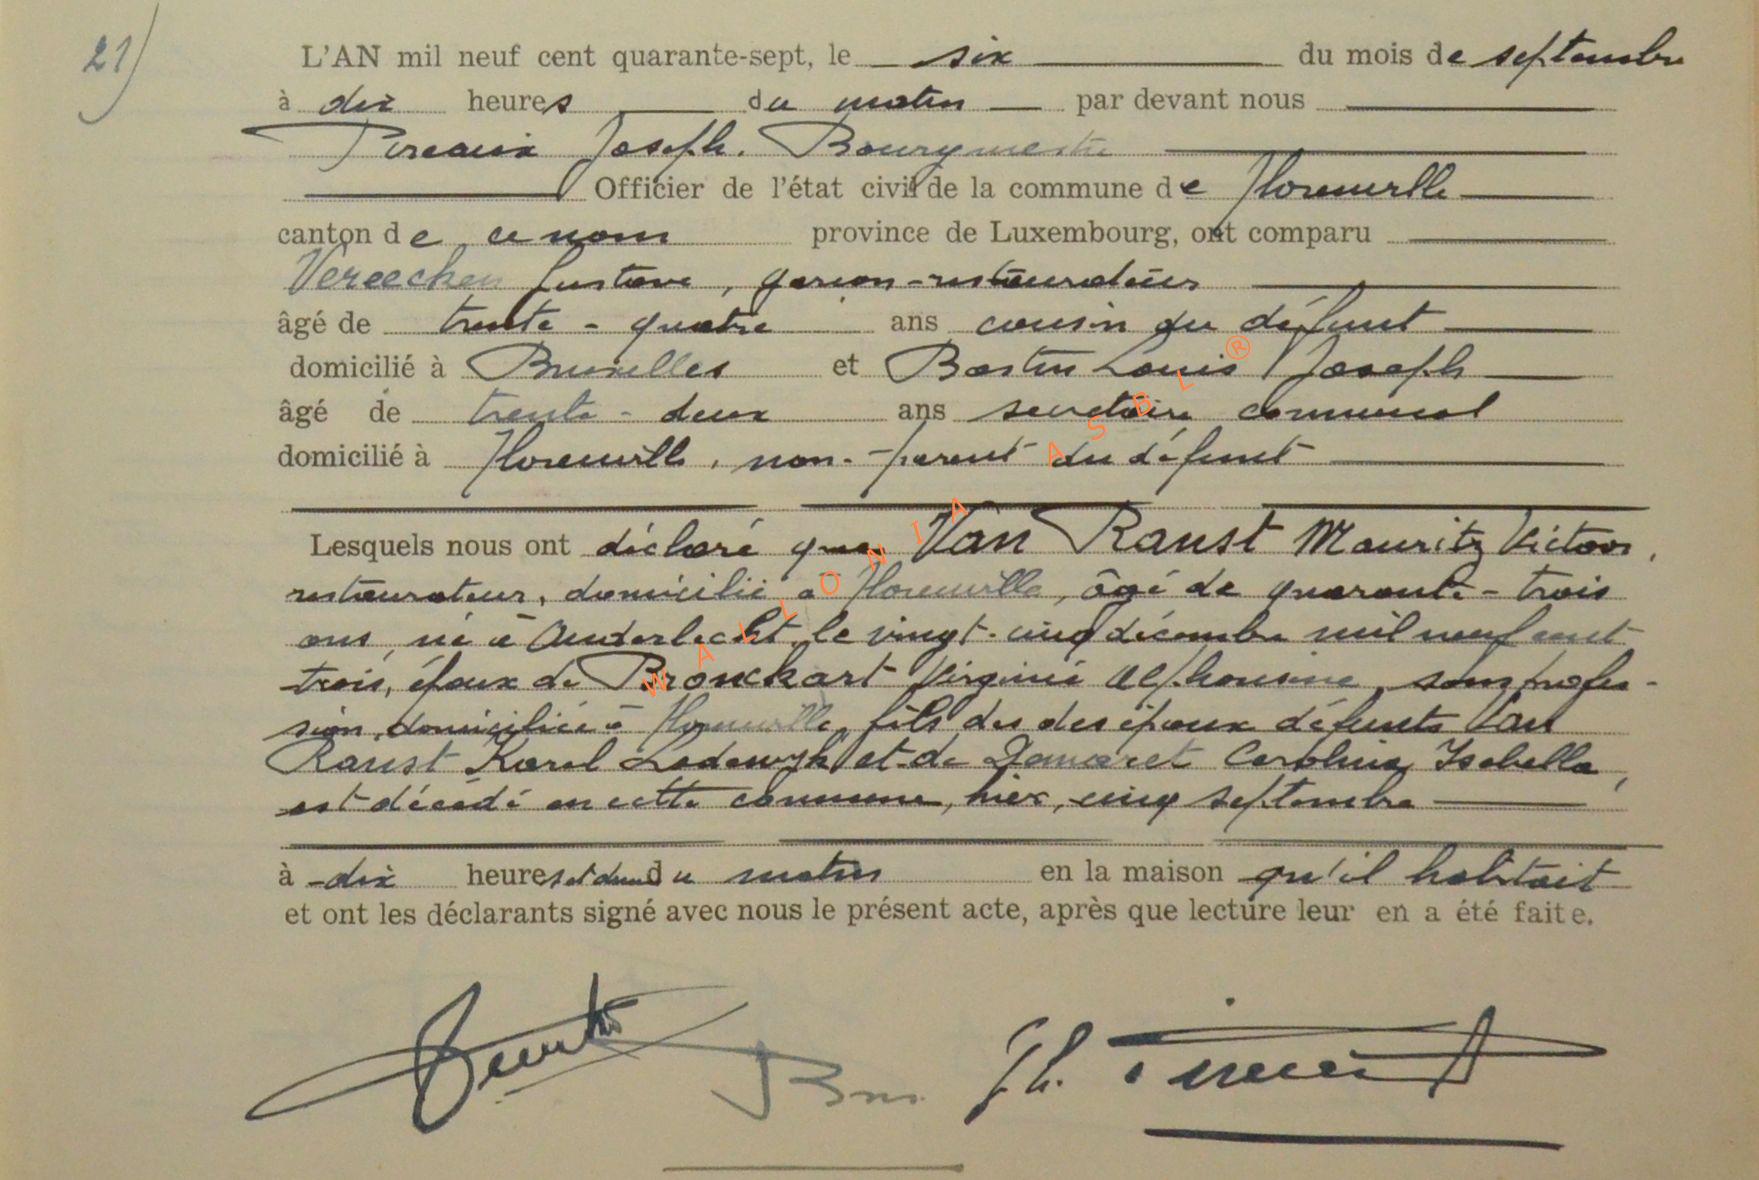 21)
L'AN mil neuf cent quarante-sept, le six du mois de septembre
à dix heures du matin par devant nous
Pireaux Joseph. Bourgmestre
Officier de l'état civil de la commune de Florenville
canton de ce nom province de Luxembourg, ont comparu
Vereecken Gustave, garçon-restaurateur
âgé de trente-quatre ans cousin du défunt
domicilié à Bruxelles et Bastin Louis Joseph
âgé de trente-deux ans secrétaire communal
domicilié à Florenville, non-parent du défunt
Lesquels nous ont déclaré que Van Ranst Mauritz Victoor,
restaurateur, domicilié à Florenville, âgé de quarante-trois
ans, né à Anderlecht, le vingt-cinq décembre mil neuf cent
trois, époux de Bronckart Virginie Alphonsine, sans profes-
sion, domiciliée à Florenville, fils des des époux défunts Van
Ranst Karel Lodewyk et de Damaret Carolina Isabella,
est décédé en cette commune, hier, cinq septembre
à dix heures et demi du matin en la maison qu'il habitait
et ont les déclarants signé avec nous le présent acte, après que lecture leur en a été faite.
WALLONIA ASBL ®